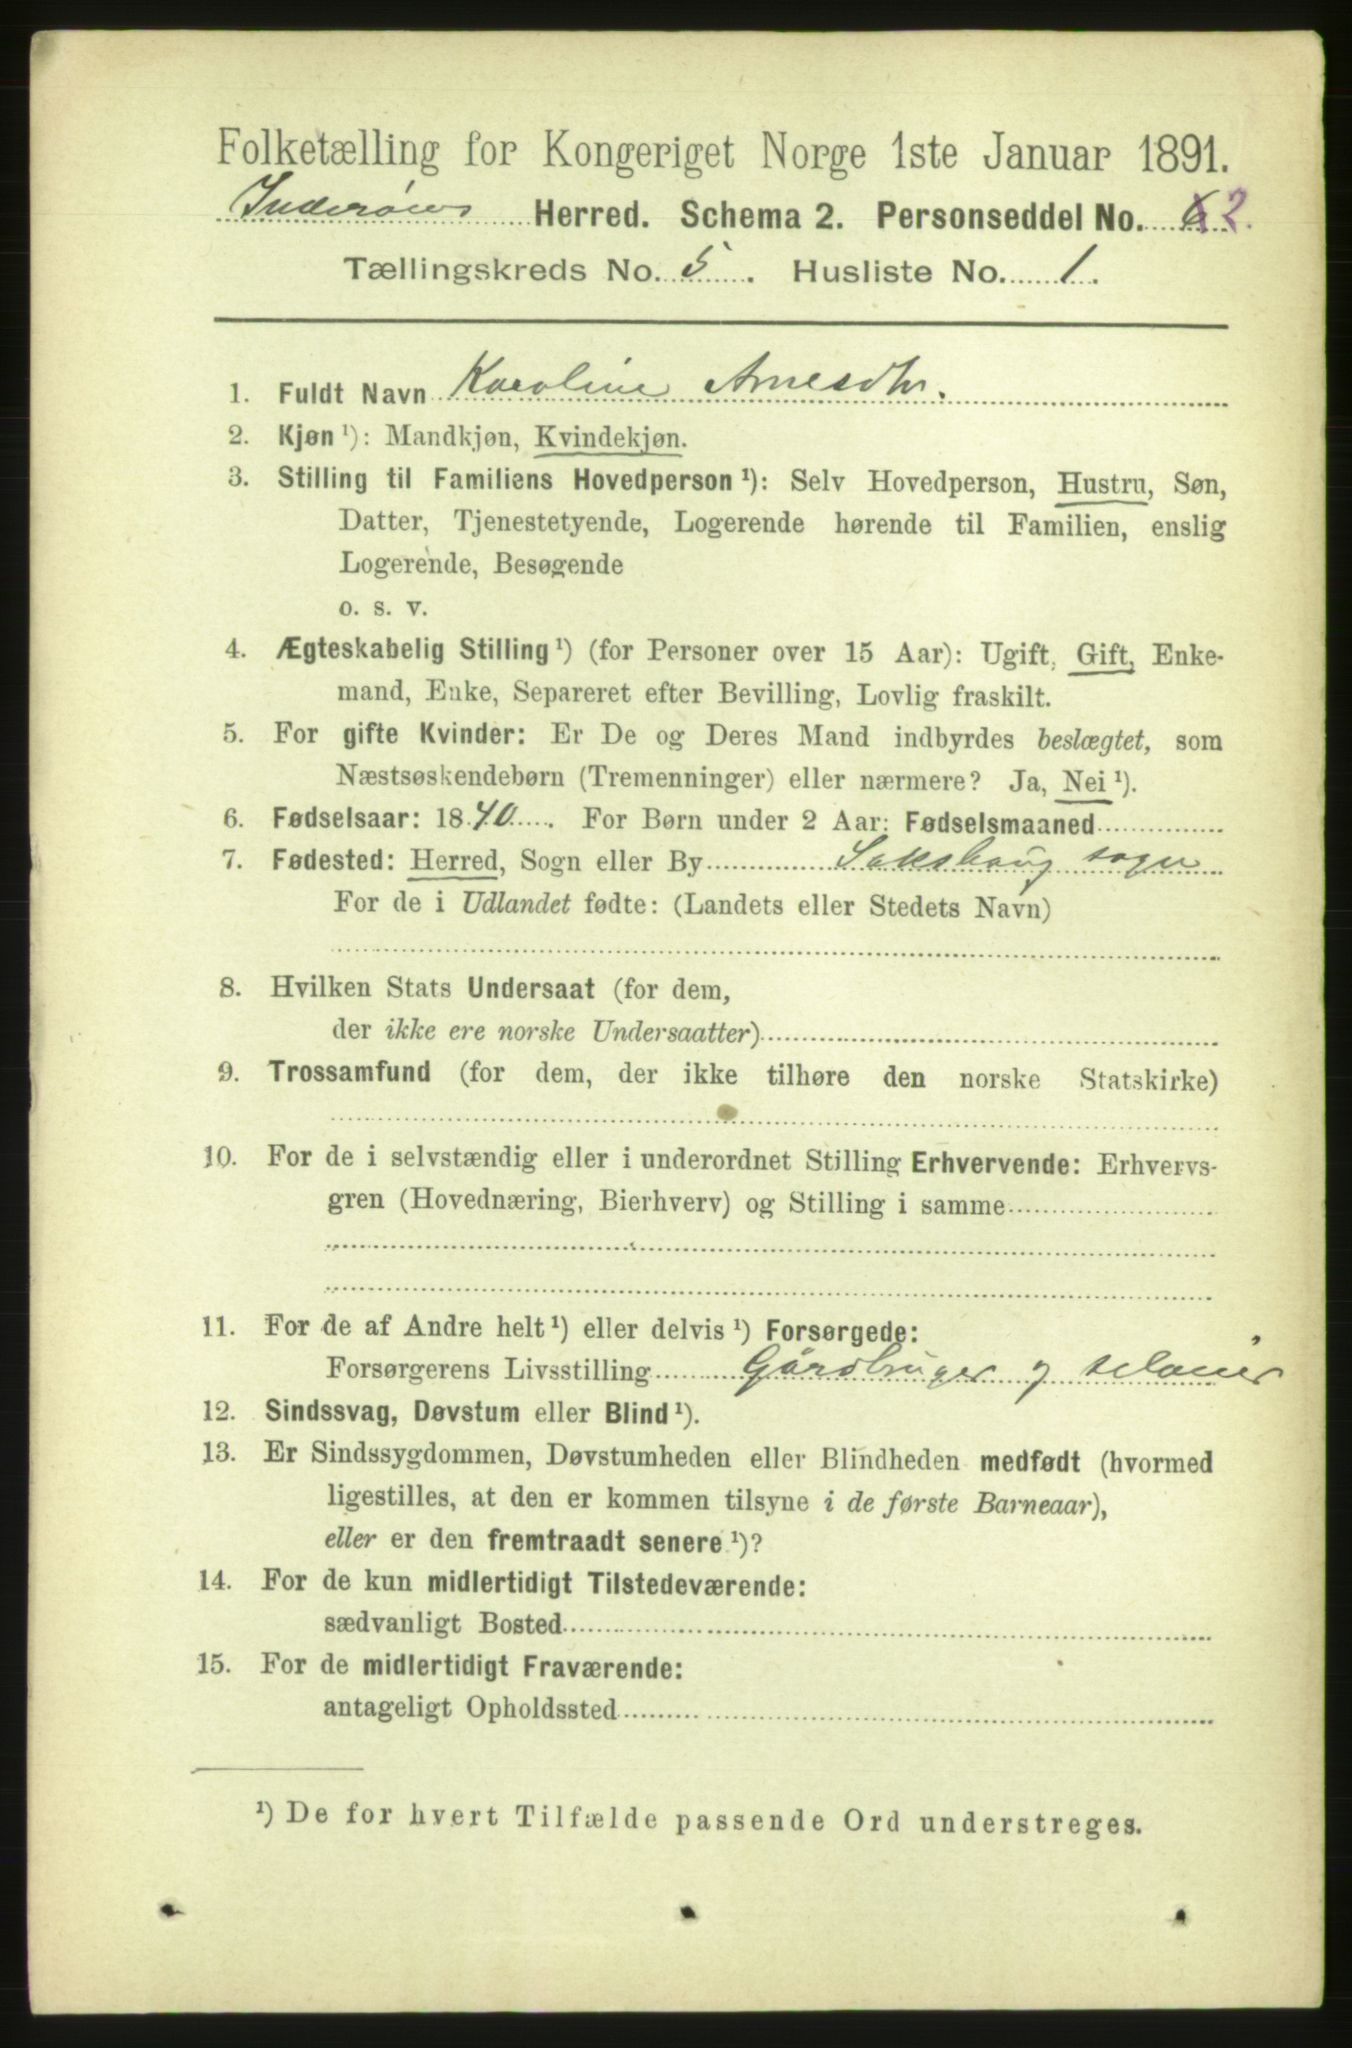 Folketælling for Kongeriget Norge 1ste Januar 1891.
Inderøens Herred. Schema 2. Personseddel No. 2.
Tællingskreds No. 5. Husliste No. 1.
1. Fuldt Navn Karoline Arnesdtr.
2. Kjøn ¹): Mandkjøn, Kvindekjøn.
3. Stilling til Familiens Hovedperson ¹): Selv Hovedperson, Hustru, Søn,
Datter, Tjenestetyende, Logerende hørende til Familien, enslig
Logerende, Besøgende
o. s. v.
4. Ægteskabelig Stilling ¹) (for Personer over 15 Aar): Ugift, Gift, Enke-
mand, Enke, Separeret efter Bevilling, Lovlig fraskilt.
5. For gifte Kvinder: Er De og Deres Mand indbyrdes beslægtet, som
Næstsøskendebørn (Tremenninger) eller nærmere? Ja, Nei ¹).
6. Fødselsaar: 1840. For Børn under 2 Aar: Fødselsmaaned
7. Fødested: Herred, Sogn eller By Sakshaug sogn
For de i Udlandet fødte: (Landets eller Stedets Navn)
8. Hvilken Stats Undersaat (for dem,
der ikke ere norske Undersaatter)
9. Trossamfund (for dem, der ikke tilhøre den norske Statskirke)
10. For de i selvstændig eller i underordnet Stilling Erhvervende: Erhvervs-
gren (Hovednæring, Bierhverv) og Stilling i samme
11. For de af Andre helt ¹) eller delvis ¹) Forsørgede:
Forsørgerens Livsstilling Gårdbruger og selveier
12. Sindssvag, Døvstum eller Blind ¹).
13. Er Sindssygdommen, Døvstumheden eller Blindheden medfødt (hvormed
ligestilles, at den er kommen tilsyne i de første Barneaar),
eller er den fremtraadt senere ¹)?
14. For de kun midlertidigt Tilstedeværende:
sædvanligt Bosted
15. For de midlertidigt Fraværende:
antageligt Opholdssted
¹) De for hvert Tilfælde passende Ord understreges.